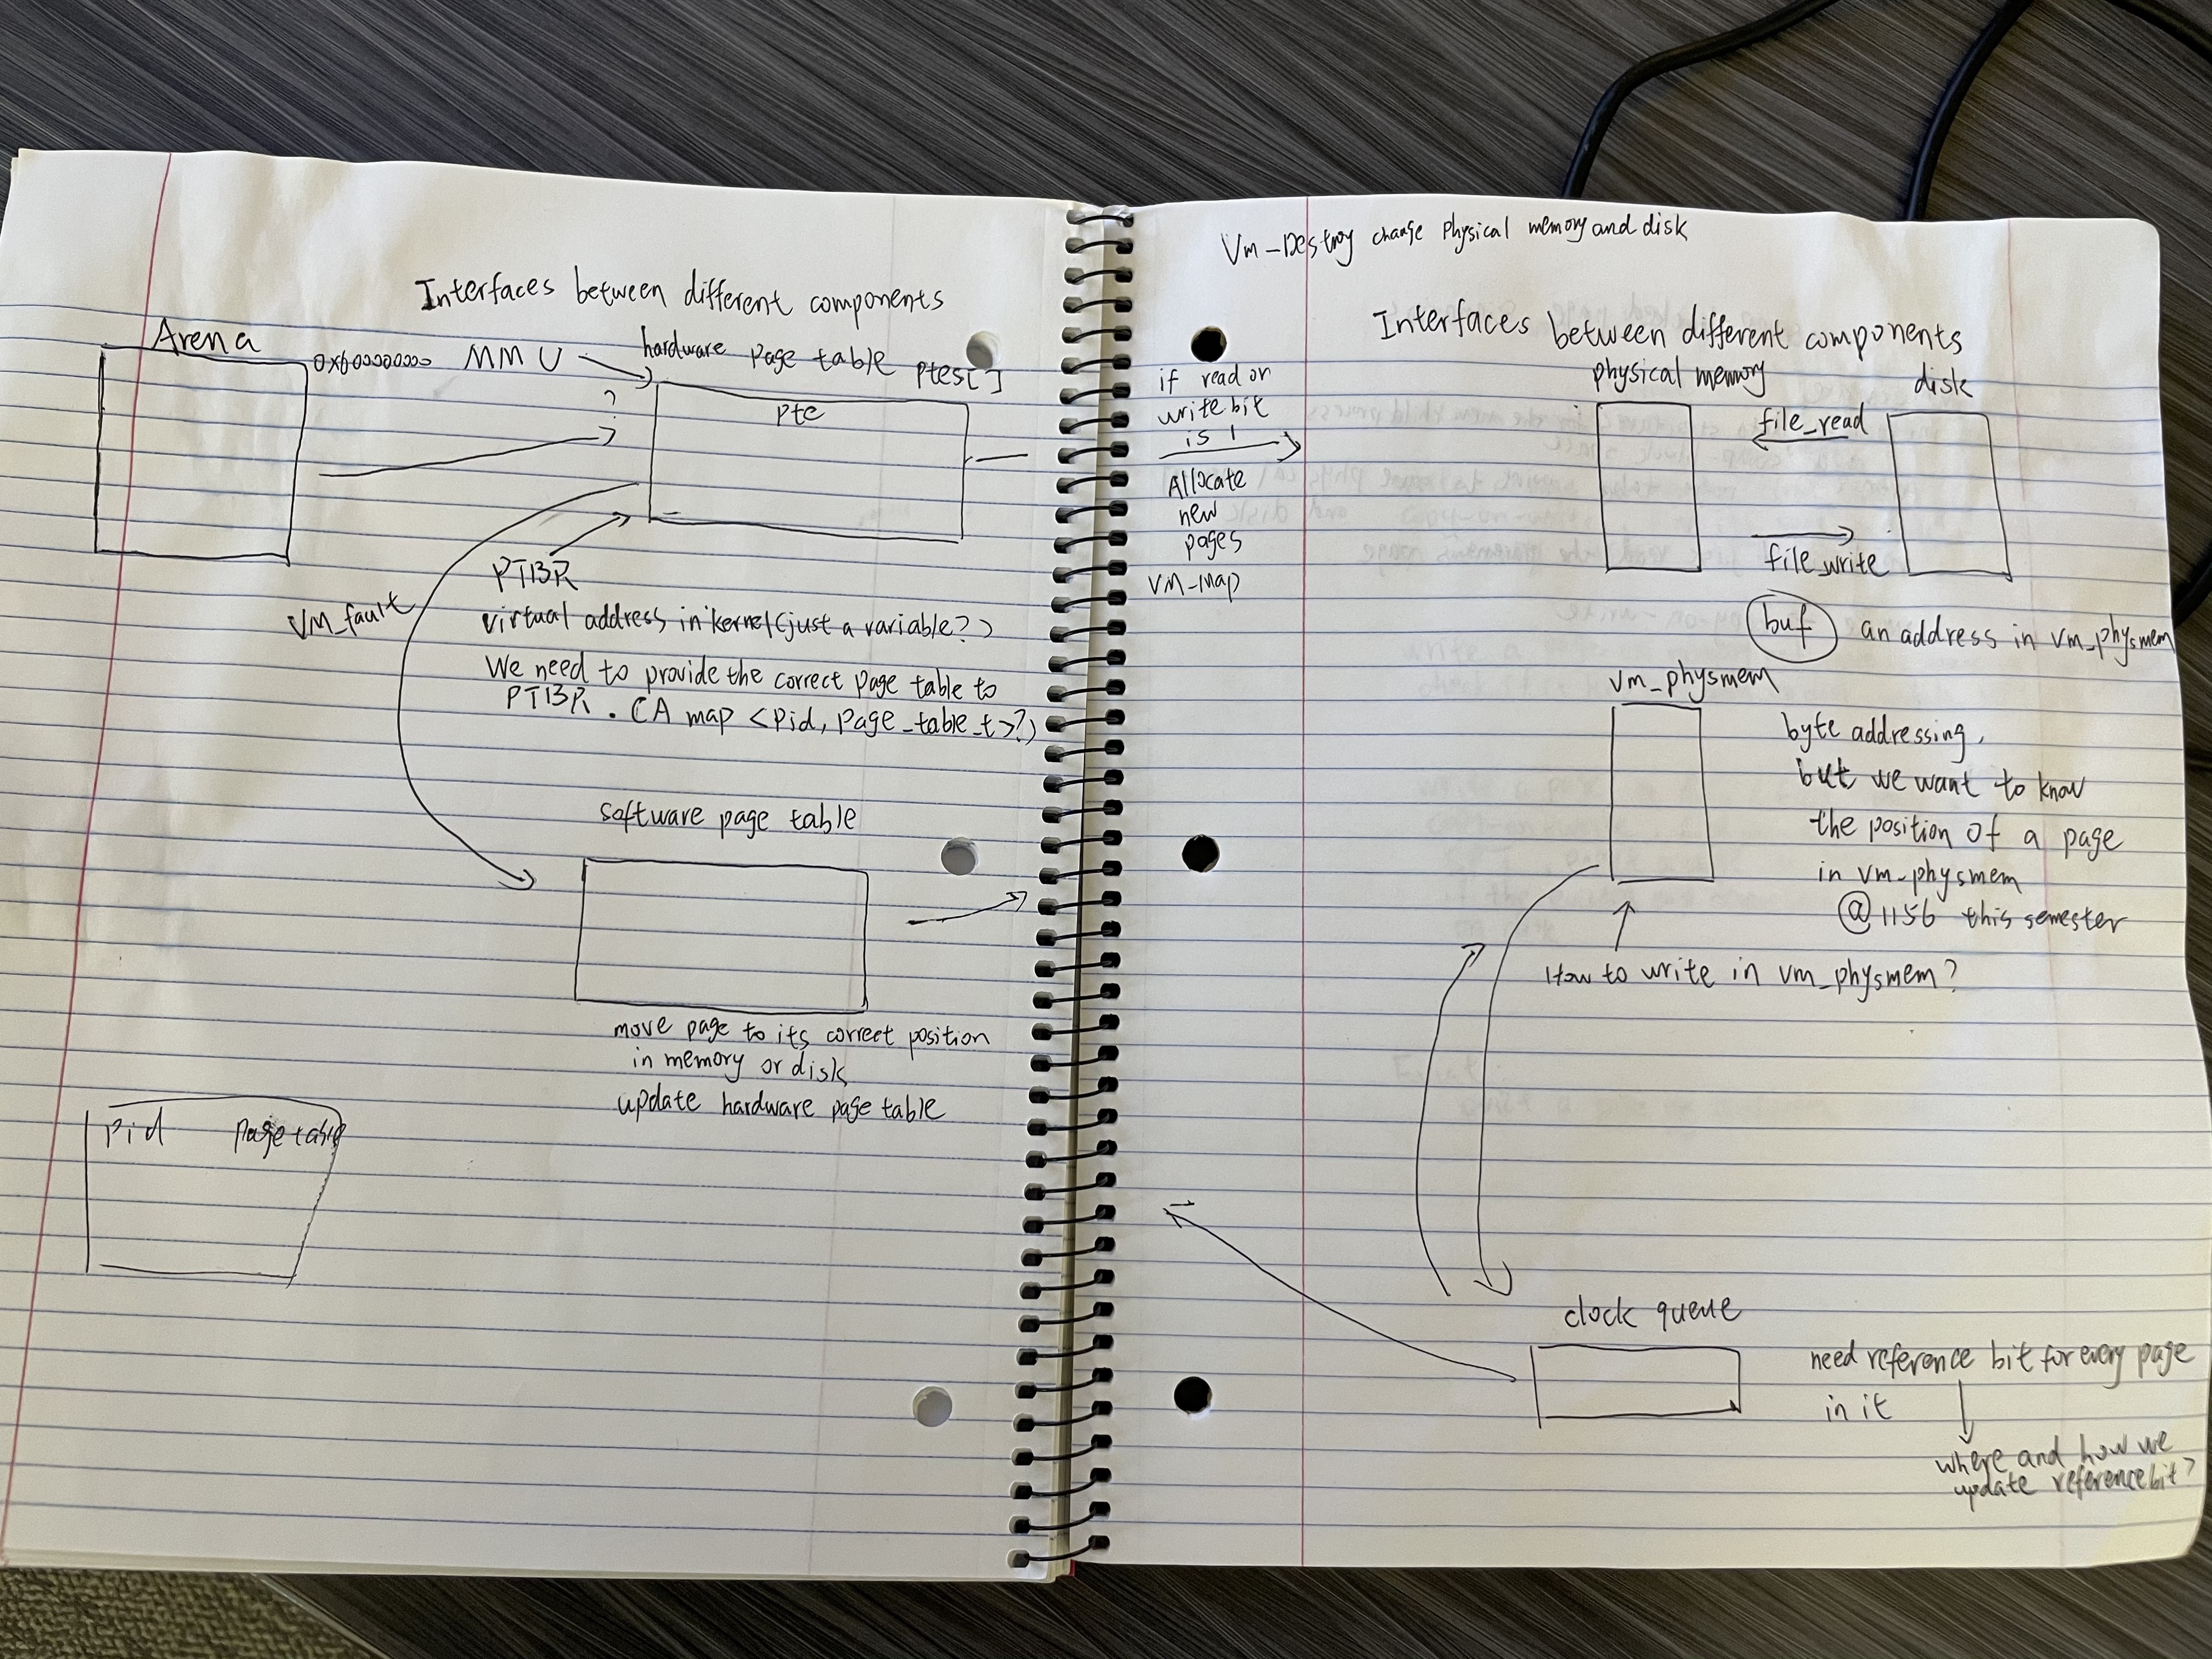 Interfaces between different components
Arena
0x600000000 MMU
hardware page table ptes[]
?
pte
PTBR
vm_fault
virtual address in kernel (just a variable?)
We need to provide the correct page table to
PTBR. (A map <pid, page_table_t>?)
software page table
move page to its correct position
in memory or disk
update hardware page table
pid page table
Vm_Destroy change physical memory and disk
Interfaces between different components
if read or
write bit
is 1
Allocate
new
pages
vm_map
physical memory
disk
file_read
file_write
buf an address in vm_physmem
vm_physmem
byte addressing,
but we want to know
the position of a page
in vm_physmem
@1156 this semester
How to write in vm_physmem?
clock queue
need reference bit for every page
in it
where and how we
update reference bit?